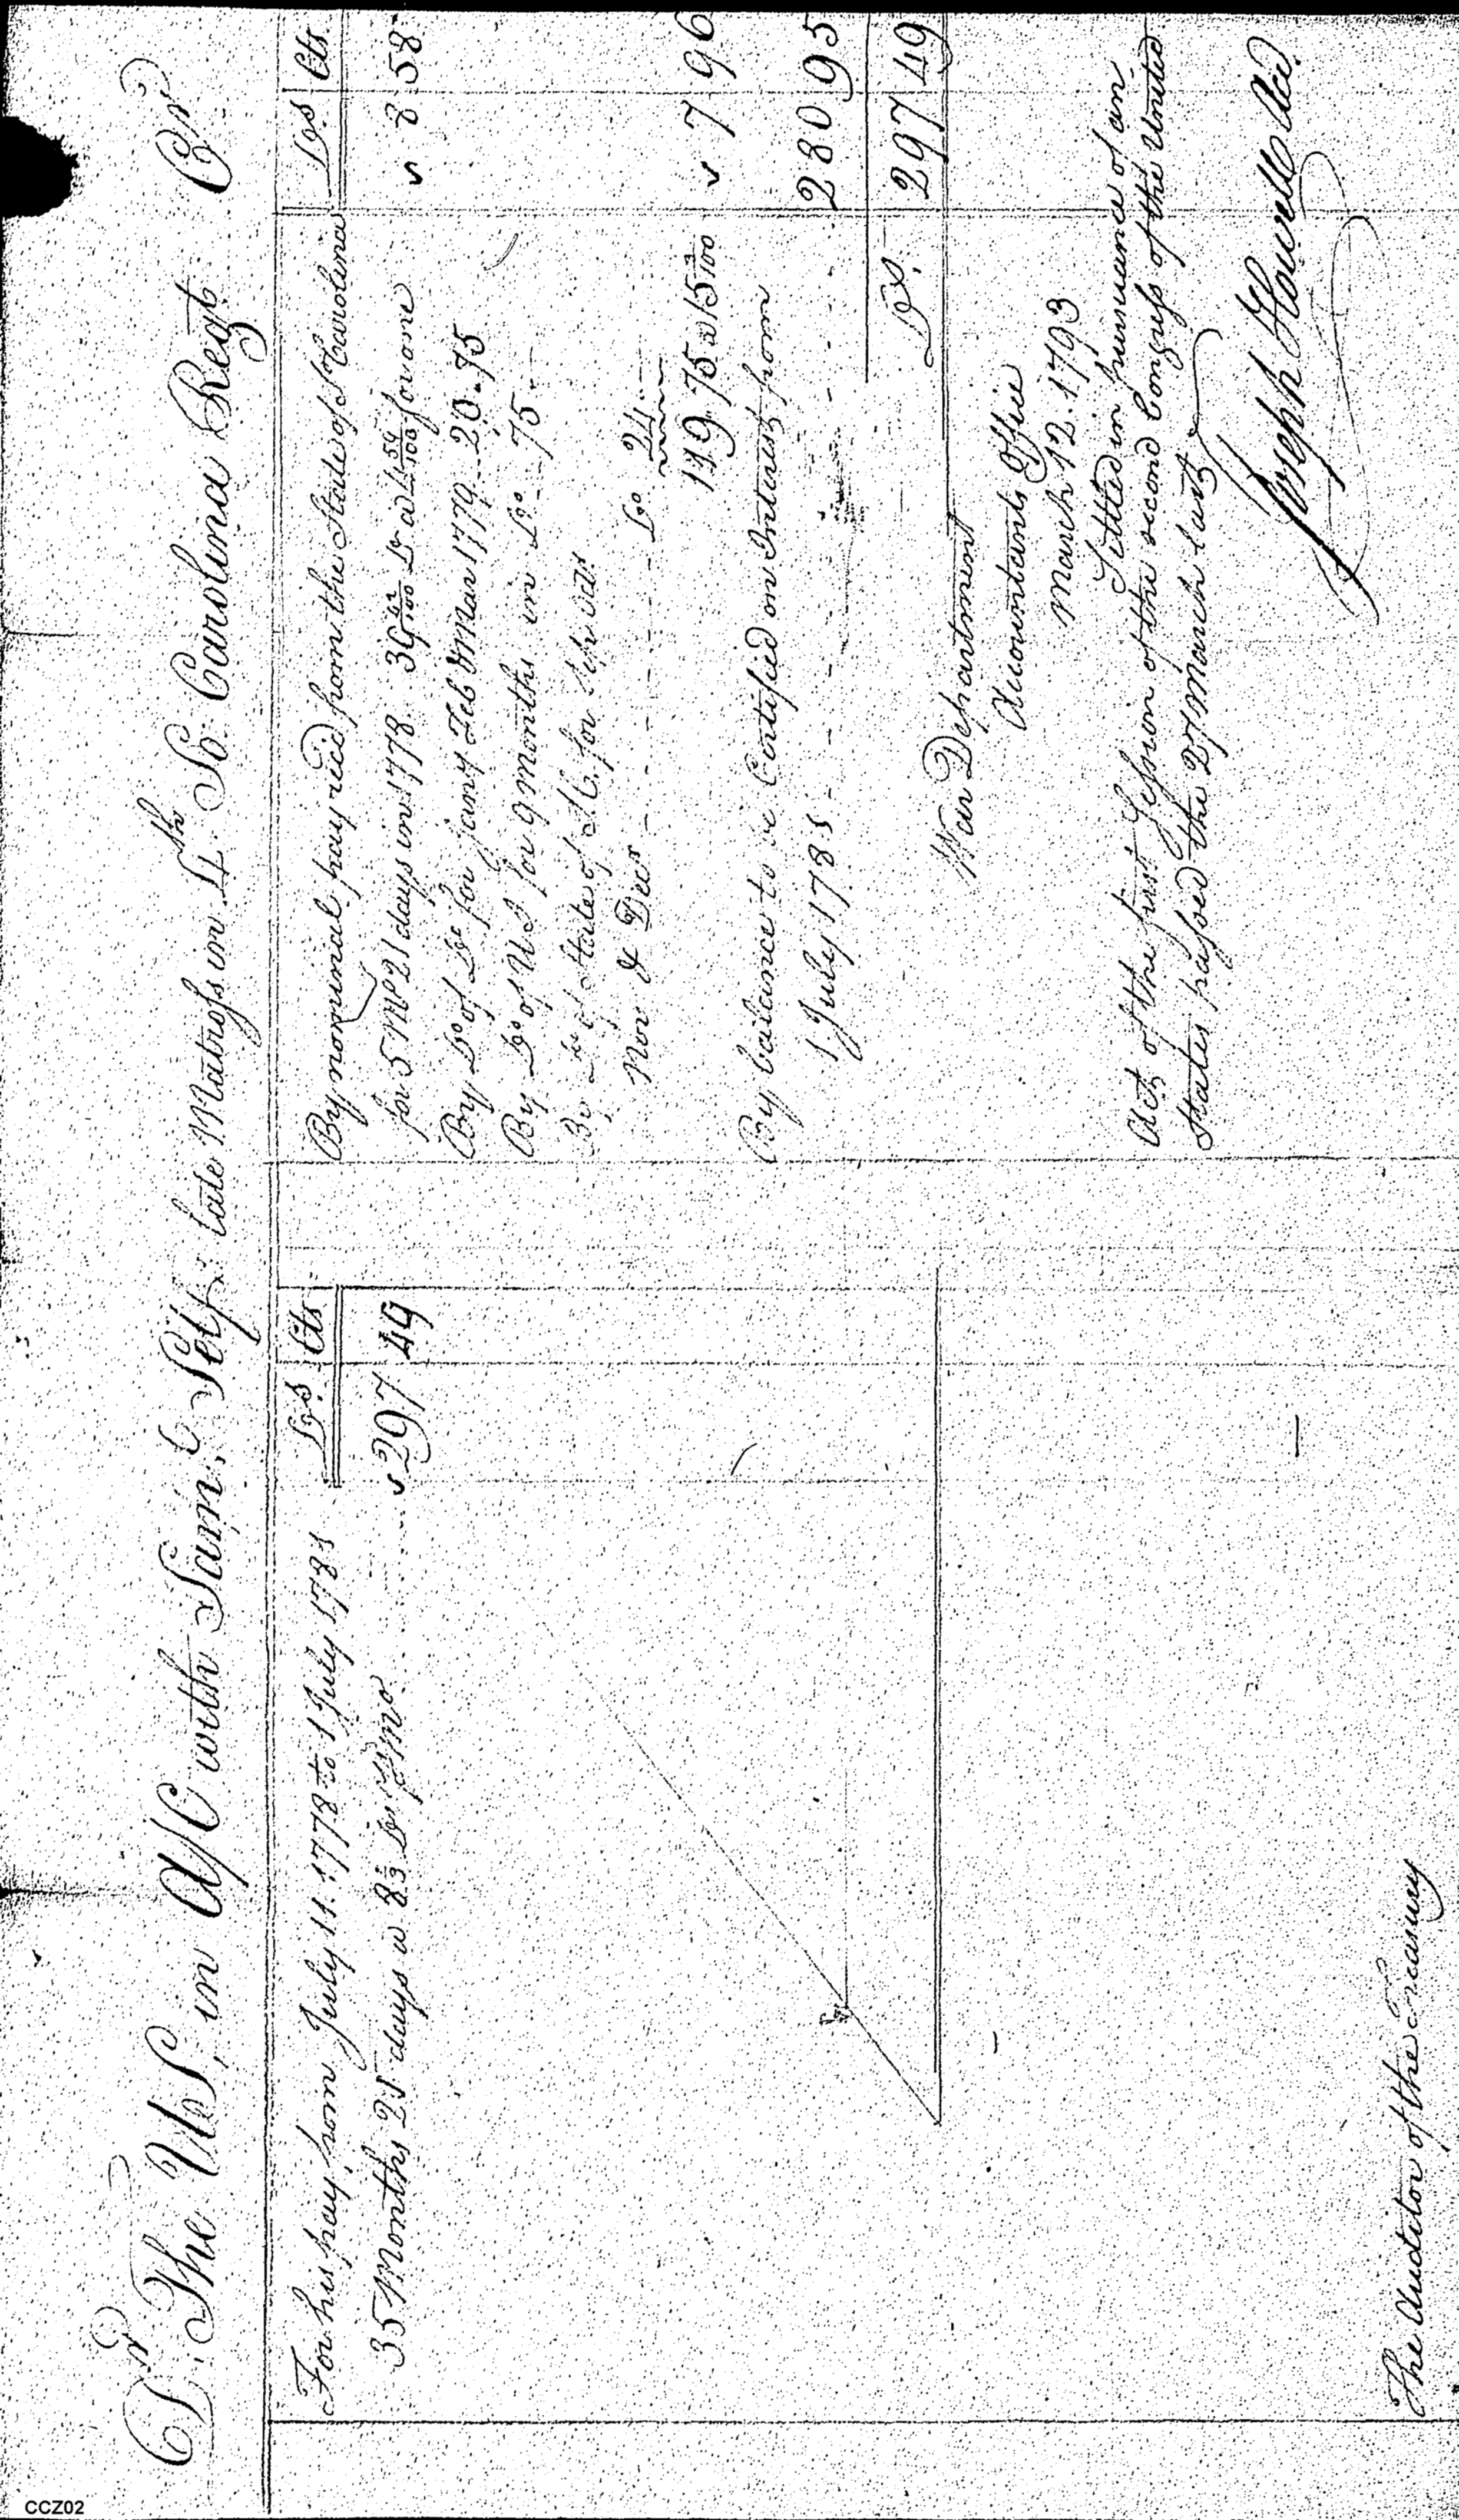 Dr The US, in A/C with Saml. Self: late Matross in 4th So. Carolina Regt Cr
Drs Cts
For his pay from July 11. 1778 to 1 July 1781
35 Months 21 days a 8 1/3 Drs pr mo 297 49
Drs Cts
By nominal pay recd from the State of S Carolina
for 5 Ms 21 days in 1778 Drs for one 8 58
By Do of Do for Jany Feb & Mar 1779 20.75
By Do of US for 9 months in Do 75
By Do of State of S C. for
Nov & Decr Do 24
119 75 a 7 96
By balance to be Certified on Interest from
1 July 1781 280 95
Drs. 297 49
War Department
Accountants Office
March 12. 1793
Settled in pursuance of an
Act of the first Session of the second Congress of the United
States passed the 27 March last
Joseph Howell
The Auditor of the Treasury
CCZ02